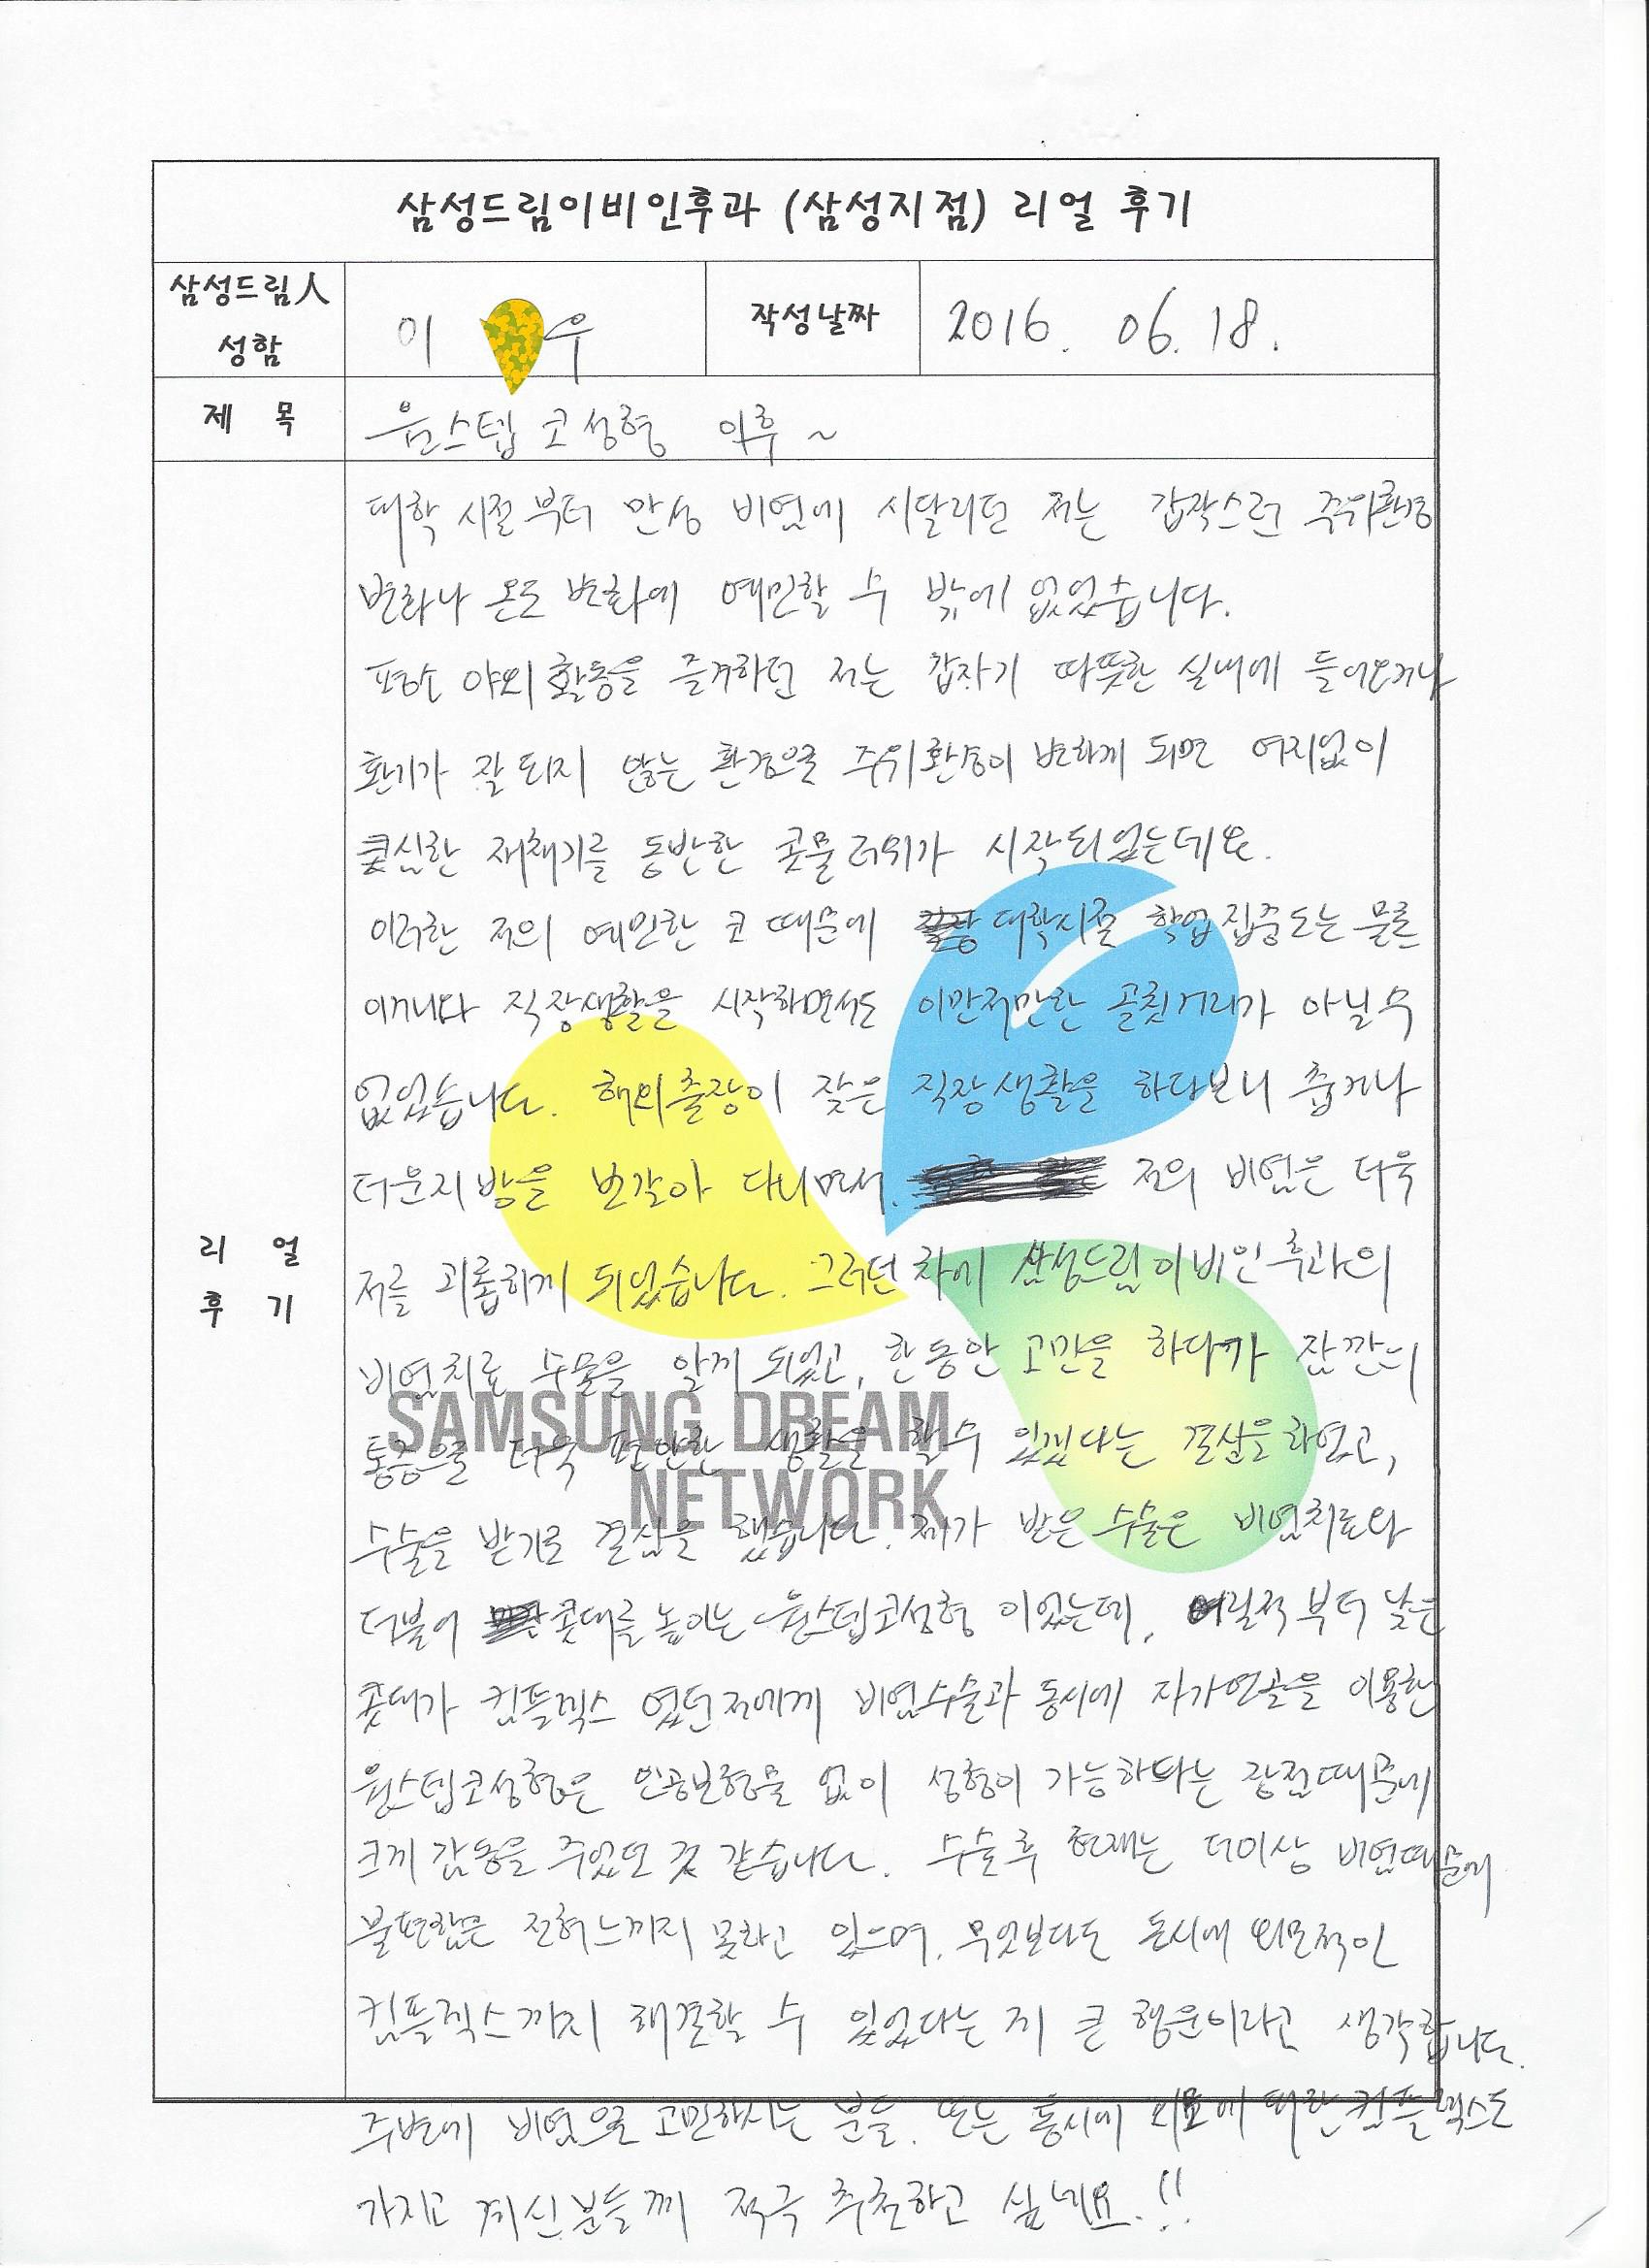 삼성드림이비인후과 (삼성지점) 리얼 후기
삼성드림人 성함
이 우
작성날짜
2016. 06. 18.
제 목
원스텝 코성형 이후 ~
리 얼 후 기
대학 시절부터 만성 비염에 시달리던 저는 갑작스런 주위환경
변화나 온도 변화에 예민할 수 밖에 없었습니다.
평소 야외 활동을 즐겨하던 저는 갑자기 따뜻한 실내에 들어오거나
환기가 잘 되지 않는 환경으로 주위환경이 변하게 되면 여지없이
심한 재채기를 동반한 콧물 러쉬가 시작되었는데요.
이러한 저의 예민한 코 때문에 대학시절 학업 집중도는 물론
이거니와 직장생활을 시작하면서도 이만저만한 골칫거리가 아닐수
없었습니다. 해외출장이 잦은 직장생활을 하다보니 춥거나
더운지방을 번갈아 다니면서. 저의 비염은 더욱
저를 괴롭히게 되었습니다. 그러던 차에 삼성드림이비인후과의
비염치료 수술을 알게 되었고, 한동안 고민을 하다가 잠깐의
통증으로 더욱 편안한 생활을 할수 있겠다는 결심을 하였고,
수술을 받기로 결심을 했습니다. 제가 받은 수술은 비염치료와
더불어 콧대를 높이는 원스텝코성형 이었는데, 어릴적부터 낮은
콧대가 컴플렉스 였던 저에게 비염수술과 동시에 자가연골을 이용한
원스텝코성형은 인공보형물 없이 성형이 가능하다는 장점때문에
크게 감동을 주었던 것 같습니다. 수술후 현재는 더이상 비염때문에
불편함은 전혀느끼지 못하고 있으며, 무엇보다도 동시에 외모적인
컴플렉스까지 해결할 수 있었다는 게 큰 행운이라고 생각합니다.
주변에 비염으로 고민하시는 분들. 또는 동시에 외모에 대한 컴플렉스도
가지고 계신 분들께 적극 추천하고 싶네요.!!
SAMSUNG DREAM
NETWORK